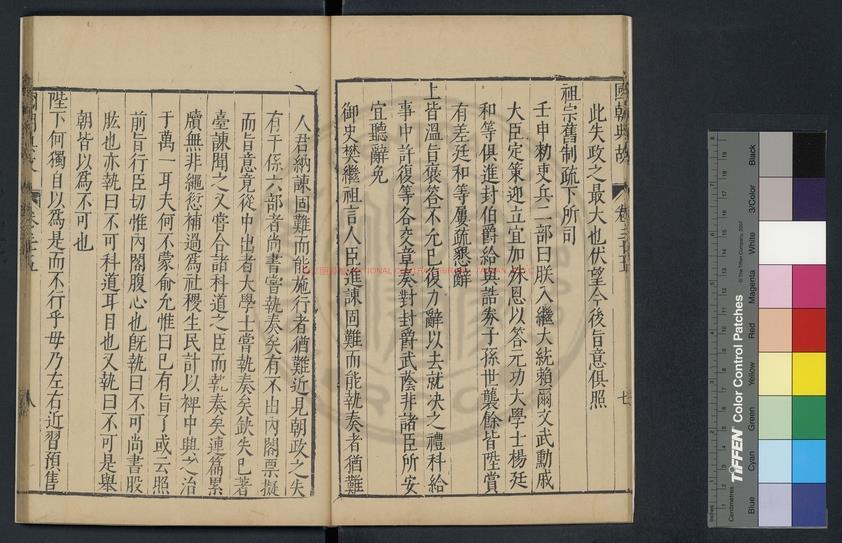 國朝典故
卷三十五
七
此失政之最大也伏望今後旨意俱照
祖宗舊制疏下所司
壬申勑吏兵二部曰朕入繼大統賴爾文武勳戚
大臣定策迎立宜加殊恩以答元功大學士楊廷
和等俱進封伯爵給與誥劵子孫世襲餘皆陞賞
有差廷和等屢疏懇辭
上皆溫旨褒答不允已復力辭以去就决之禮科給
事中許復等各交章奏對封爵武蔭非諸臣所安
宜聽辭免
御史樊繼祖言人臣進諫固難而能執奏者猶難
人君納諫固難而能施行者猶難近見朝政之失
有于係六部者尚書嘗執奏矣有不由內閣票擬
而旨意竟從中出者大學士嘗執奏矣缺失已著
臺諫聞之又嘗合諸科道之臣而執奏矣連篇累
牘無非繩愆補過爲社稷生民計以裨中興之治
于萬一耳夫何不蒙俞允惟曰已有旨了或云照
前旨行臣切惟內閣腹心也既執曰不可尚書股
肱也亦執曰不可科道耳目也又執曰不可是舉
朝皆以爲不可也
陛下何獨自以爲是而不行乎毋乃左右近習預售
國朝典故
卷三十五
八
TIFFEN Color Control Patches
© The Tiffen Company, 2007
Centimetres
Inches
Blue
Cyan
Green
Yellow
Red
Magenta
White
3/Color
Black